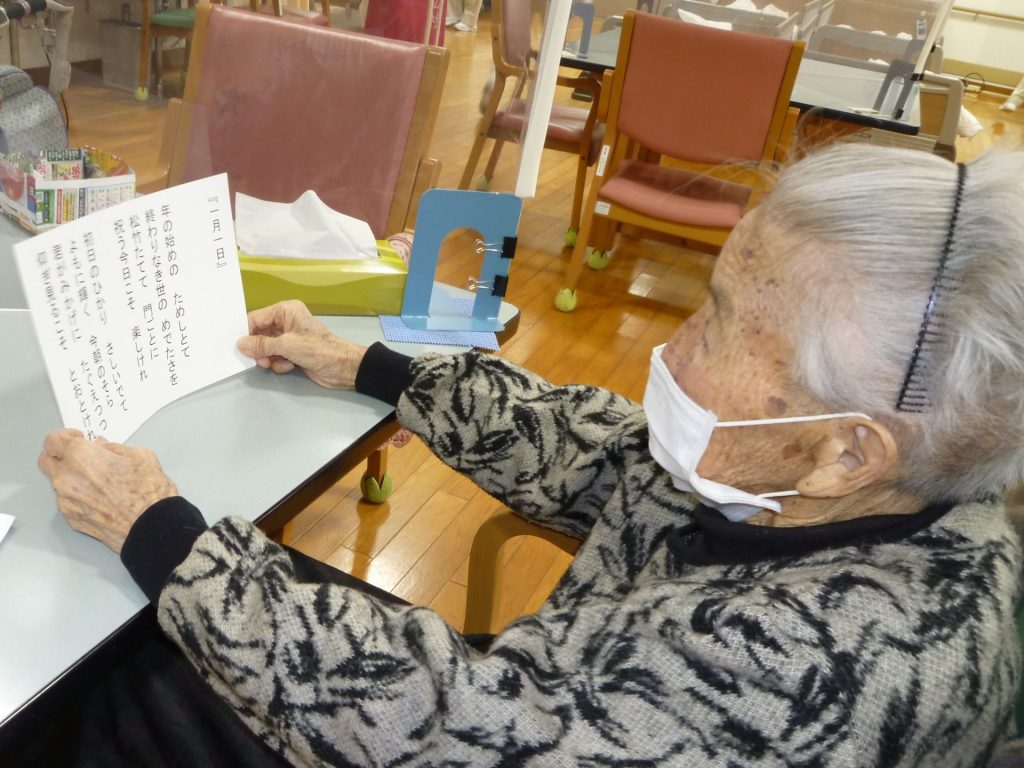 『一月一日』
年の始めの　ためしとて
終わりなき世の　めでたさを
松竹たてて　門ごとに
祝う今日こそ　楽しけれ
初日のひかり　さしいでて
よもに輝く　今朝のそら
君がみかげに　たぐえつつ
仰ぎ見るこそ　とおとけれ